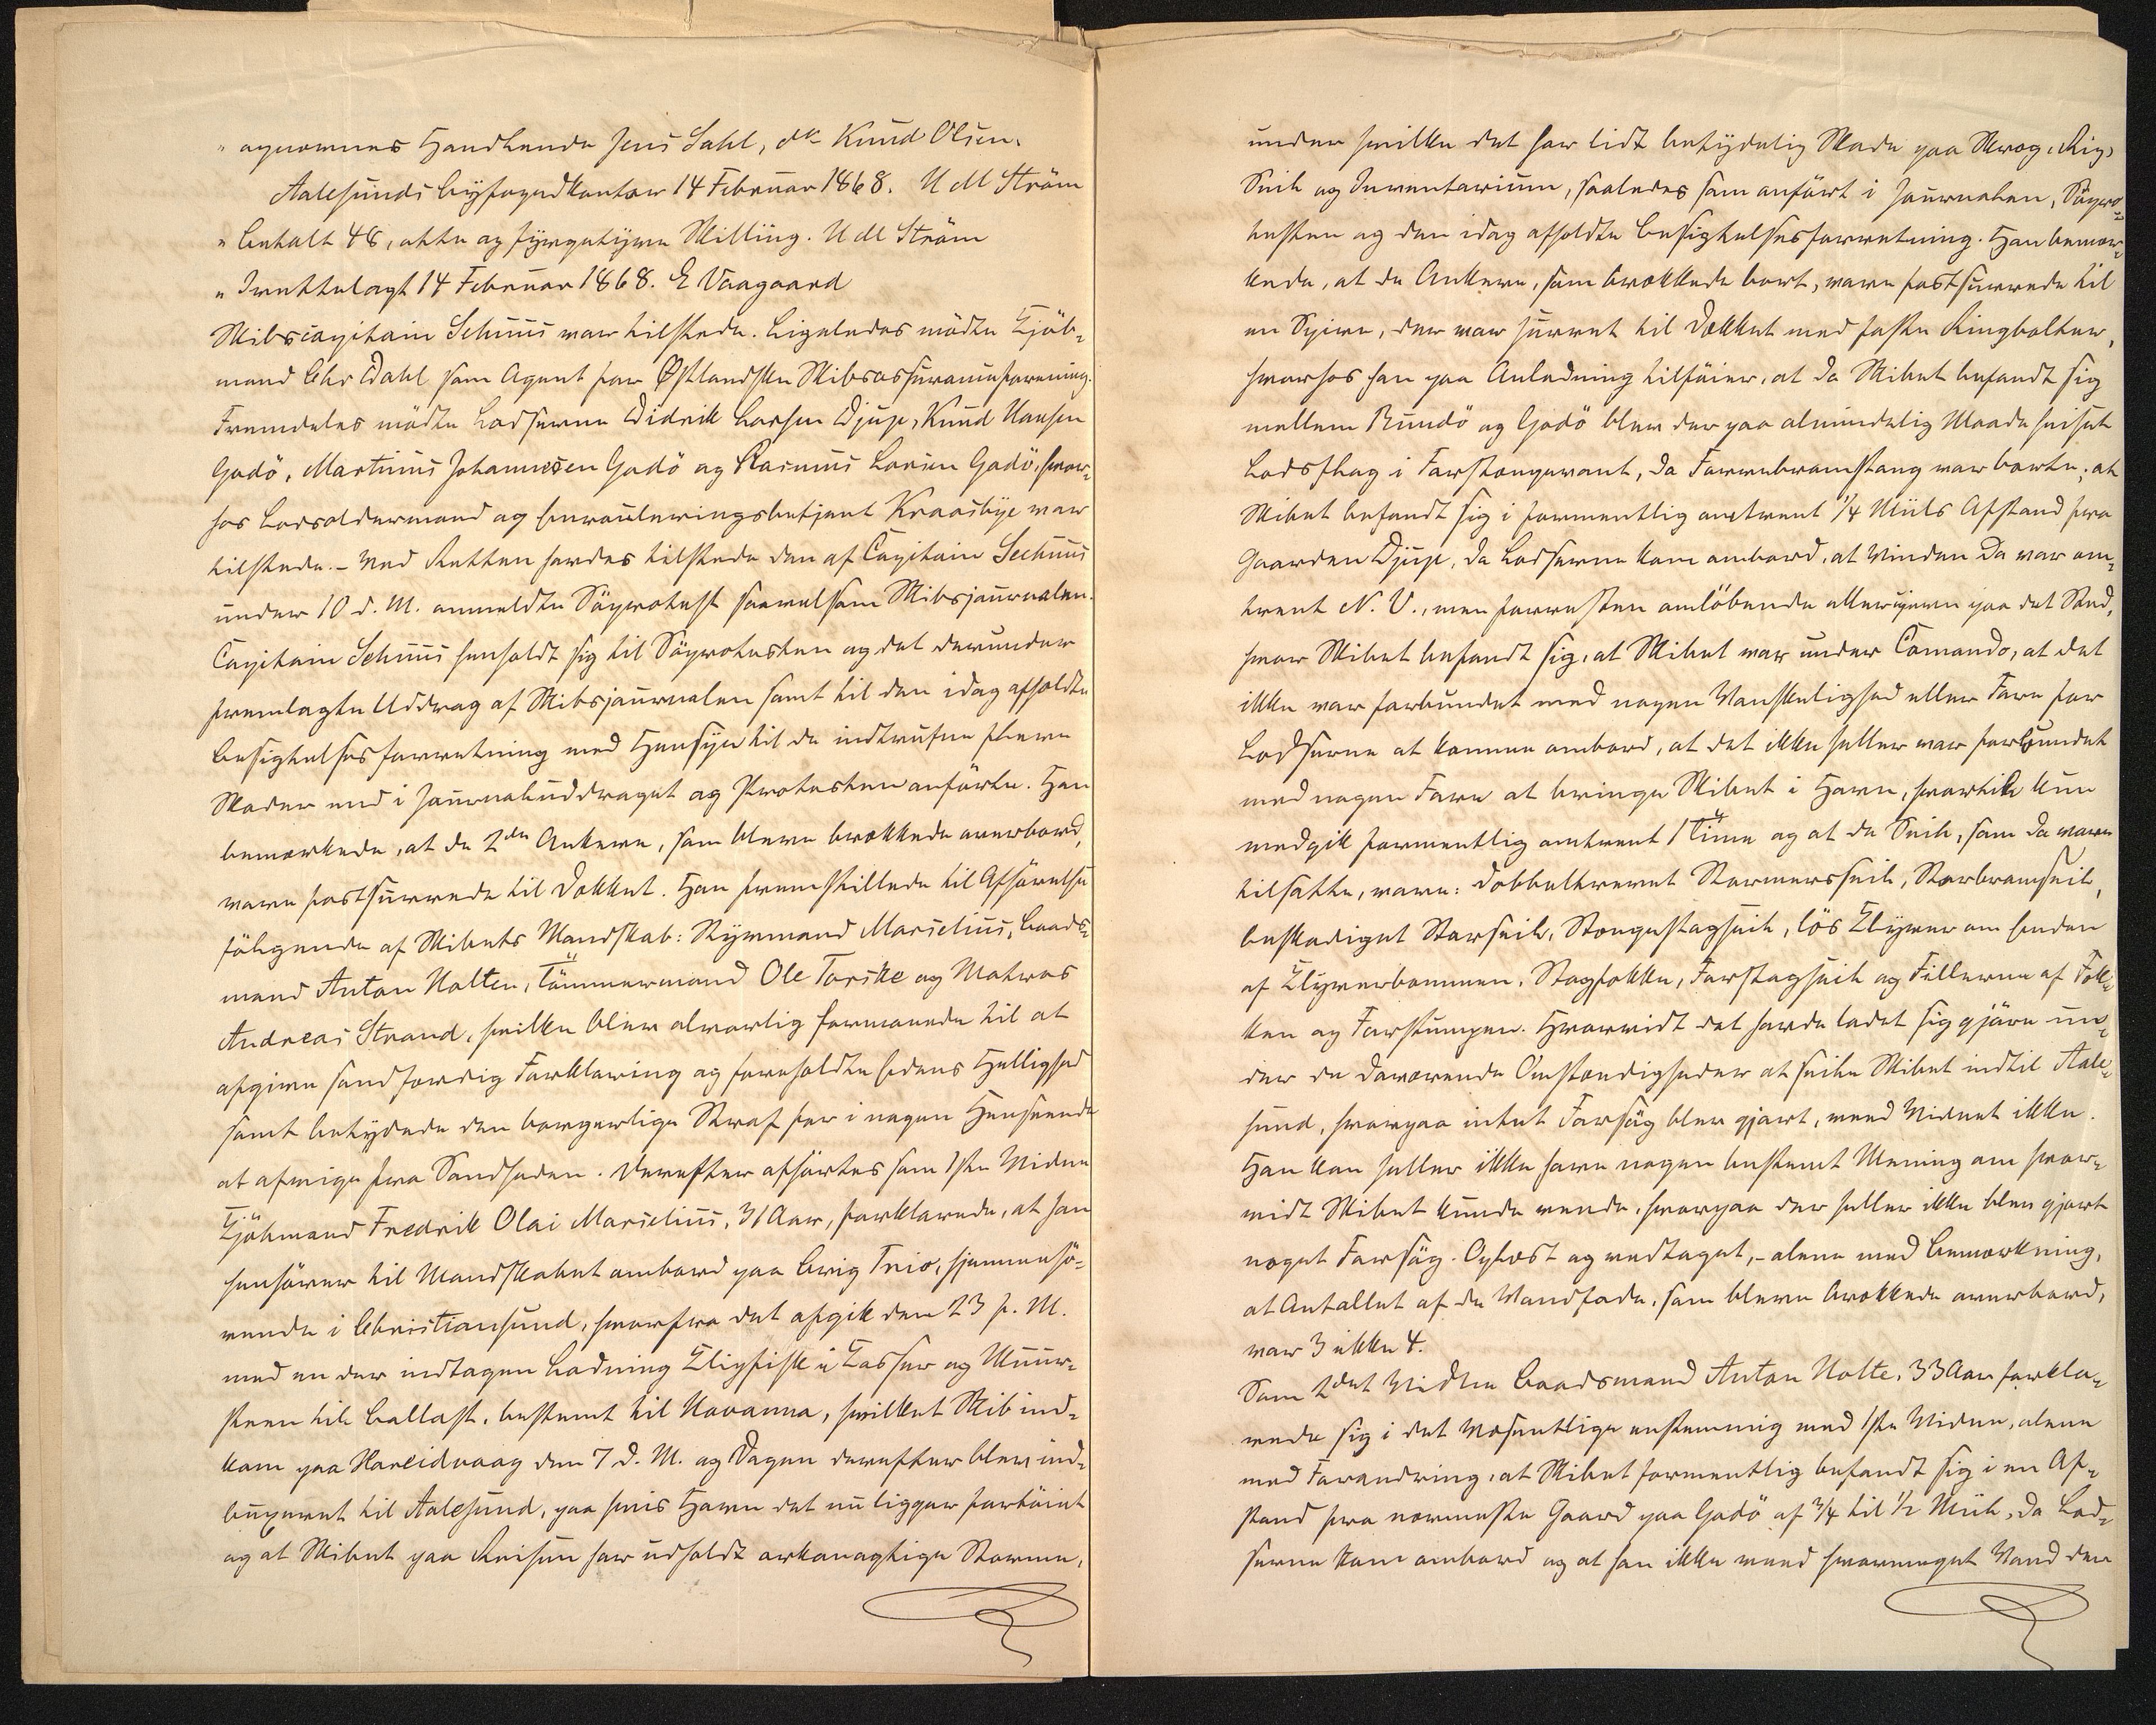 " opnævnes Handlende Jens Dahl, do Knud Olsen.
Aalesunds Byfogedkontor 14 Februar 1868. U M Ström
" Betalt 48, otte og fyrgetyve Skilling. U M Ström
" Irettelagt 14 Februar 1868. E Vaagaard
Skibscapitain Schuus var tilstede. Ligeledes mödte Kjöb-
mand Chr Dahl som Agent for Østlandske Skibsassuranceforening.
Fremdeles mödte Lodserne Didrik Larsen Djup, Knud Hansen
Godö, Martinus Johannesen Godö og Rasmus Larsen Godö, hvor-
hos Lodsoldermand og Enrouleringsbetjent Kraasbye var
tilstede. – Ved Retten havdes tilstede den af Capitain Schuus
under 10 d. M. anmeldte Söprotest saavelsom Skibsjournalen.
Capitain Schuus henholdt sig til Söprotesten og det derunder
fremlagte Uddrag af Skibsjournalen samt til den idag afholdte
Besigtelsesforretning med Hensyn til de indtrufne flere
Skader end i Journaluddraget og Protesten anförte. Han
bemærkede, at de 2de Ankere, som bleve brækkede overbord,
vare fastsurrede til Dækket. Han fremstillede til Afhörelse
fölgende af Skibets Mandskab: Styrmand Marselius, Baads-
mand Anton Holten, Tömmermand Ole Torske og Matros
Andreas Strand, hvilke blev alvorlig formanede til at
afgive sandfærdig Forklaring og foreholdte Edens Hellighed
samt betydede den borgerlige Straf for i nogen Henseende
at afvige fra Sandheden. Derefter afhörtes som 1ste Vidne
Kjöbmand Fredrik Olai Marselius, 31 Aar, forklarede, at han
henhörer til Mandskabet ombord paa Brig Trio, hjemmehö-
rende i Christiansund, hvorfra det afgik den 23 f. M.
med en der indtagen Ladning Klipfisk i Kasser og Muur-
steen til Ballast, bestemt til Havanna, hvilket Skib ind-
kom paa Hareidvaag den 7 d. M. og Dagen derefter blev ind-
buxeret til Aalesund, paa hvis Havn det nu ligger fortöiet
og at Skibet paa Reisen har udholdt orkanagtige Storme,
under hvilke det har lidt betydelig Skade paa Skrog, Rig,
Seil og Inventarium, saaledes som anfört i Journalen, Söpro-
testen og den idag afholdte Besigtelsesforretning. Han bemær-
kede, at de Ankere, som brækkede bort, vare fastsurrede til
en Spire, der var surret til Dækket med faste Ringbolter,
hvorhos han paa Anledning tilföier, at da Skibet befandt sig
mellem Rundö og Godö blev der paa almindelig Maade heiset
Lodsflag i Forstængevant, da Forrebramstang var borte, at
Skibet befandt sig i formentlig omtrent 1/4 Miils Afstand fra
Gaarden Djup, da Lodserne kom ombord, at Vinden da var om-
trent N. V., men forresten omlöbende allerveien paa det Sted,
hvor Skibet befandt sig, at Skibet var under Comando, at det
ikke var forbundet med nogen Vanskelighed eller Fare for
Lodserne at komme ombord, at det ikke heller var forbundet
med nogen Fare at bringe Skibet i Havn, hvortil kun
medgik formentlig omtrent 1 Time og at de Seil, som da vare
tilsatte, vare: dobbeltrevet Stormersseil, Storbramseil,
beskadiget Storseil, Stængestagseil, lös Klyver om Enden
af Klyverbommen, Stagfokke, Forstagseil og Fillerne af Fok-
ken og Forstumpen. Hvorvidt det havde ladet sig gjöre un-
der de daværende Omstændigheder at seile Skibet indtil Aale-
sund, hvorpaa intet Forsög blev gjort, veed Vidnet ikke.
Han kan heller ikke have nogen bestemt Mening om hvor-
vidt Skibet kunde vende, hvorpaa der heller ikke blev gjort
noget Forsög. Oplæst og vedtaget, – alene med Bemærkning,
at Antallet af de Vandfade, som bleve brækkede overbord,
var 3 ikke 4.
Som 2det Vidne Baadsmand Anton Holte, 33 Aar forkla-
rede sig i det Væsentlige enstemmig med 1ste Vidne, alene
med Forandring, at Skibet formentlig befandt sig i en Af-
stand fra nærmeste Gaard paa Godö af 3/4 til 1/2 Miil, da Lod-
serne kom ombord og at han ikke veed hvormeget Vand der